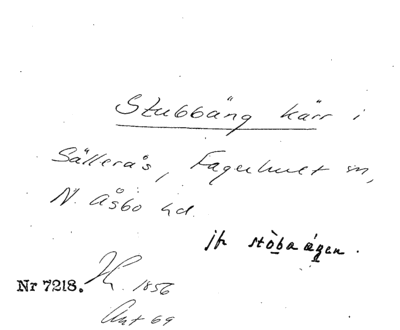 Stubbäng kärr i
Sällerås, Fagerhult sn,
N. Åsbo hd.
jfr stòba ágen.
Nr 7218. 1856
Akt 69